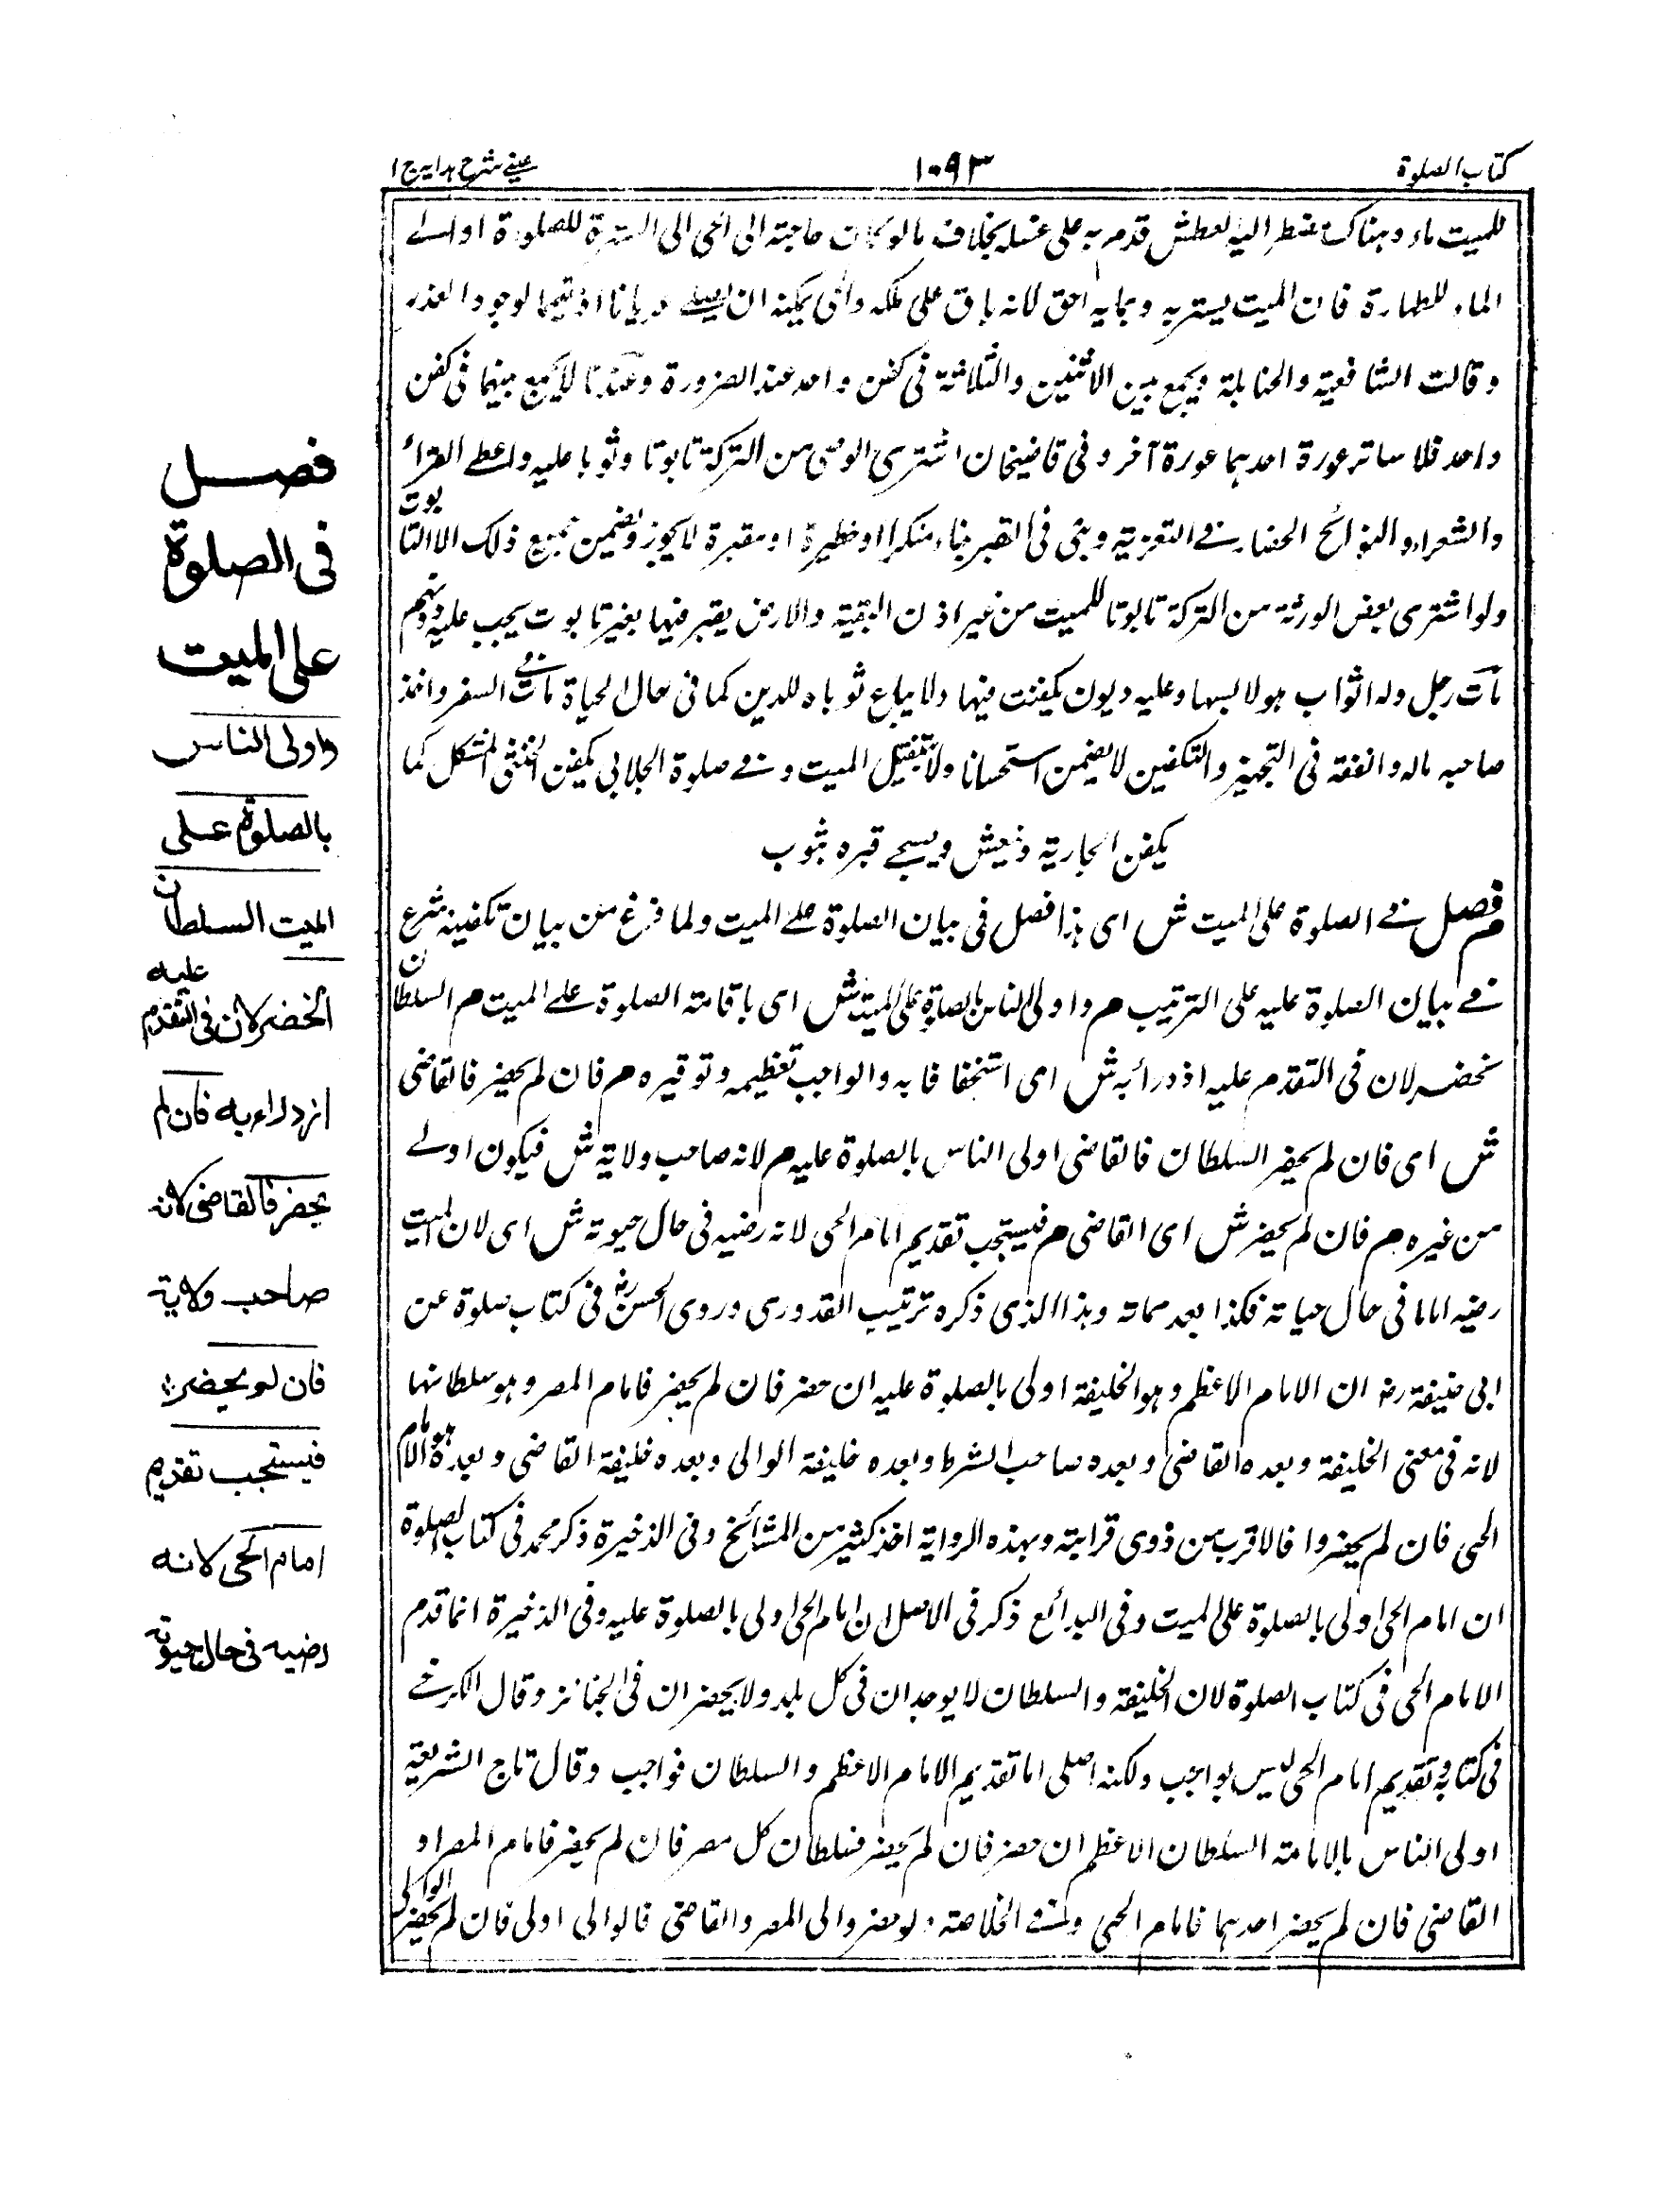 كتاب الصلوة
١٠٩٣
عینے شرح ہدایہ ج ١
للميت ماء وهناك مضطر اليه لعطش قدم به على غسله بخلاف مالو كان حاجته الى اخى الى السترة للصلوة اولے
الماء للطهارة فان الميت يستر به وبمايه احق لانه باق على ملكه والحى يمكنه ان يصلے عريانا اذ تيمما لوجود العذر
وقالت الشافعية والحنابلة ويجمع بين الاثنين والثلاثة فى كفن واحد عند الضرورة وعندنا لا يجمع بينهما فى كفن
واحد فلا ساتر عورة احدهما عورة آخر وفى قاضيخان اشترى الوصى من التركة تابوتا وثوبا عليه واعطے القراء
والشعراء والنوائح الحضار فے التعزية وبنى فى القبر بناء منكرا او حظيرة او مقبرة لا يجوز ويضمن جميع ذلك الا التابوت
ولو اشترى بعض الورثة من التركة تابوتا للميت من غير اذن البقية والارض يقبر فيها بغير تابوت يجب عليه دونهم
مات رجل وله اثواب هو لابسها وعليه ديون يكفنت فيها ولا يباع ثوباه للدين كما فى حال الحياة مات فے السفر واخذ
صاحبه ماله وانفقه فى التجهيز والتكفين لا يضمن استحسانا ولا تقبيل الميت وفے صلوة الجلابى يكفن الخنثى المشكل كما
يكفن الجارية وينعش ويسجے قبره بثوب
م فصل فے الصلوة على الميت ش اى هذا فصل فى بيان الصلوة علے الميت ولما فرغ من بيان تكفينه شرع
فے بيان الصلوة عليه على الترتيب م واولى الناس بالصلوة على الميت ش اى باقامة الصلوة علے الميت م السلطان
يحضر لان فى التقدم عليه ازدرائه به ش اى استخفافا به والواجب تعظيمه وتوقيره م فان لم يحضر فالقاضى
ش اى فان لم يحضر السلطان فالقاضى اولى الناس بالصلوة عليه م لانه صاحب ولاية ش فيكون اولے
من غيره م فان لم يحضر ش اى القاضى م فيستحب تقديم امام الحى لانه رضيه فى حال حيوته ش اى لان الميت
رضيه اماما فى حال حياته فكذا بعد مماته وهذا الذى ذكره ترتيب القدورى وروى الحسن رح فى كتاب صلوة عن
ابى حنيفة رض ان الامام الاعظم وهو الخليفة اولى بالصلوة عليه ان حضر فان لم يحضر فامام المصر وهو سلطانها
لانه فى معنى الخليفة وبعده القاضى وبعده صاحب الشرط وبعده خليفة الوالى وبعده خليفة القاضى وبعده هولاء الامام
الحى فان لم يحضروا فالاقرب من ذوى قرابته وبهذه الرواية اخذ كثير من المشائخ وفى الذخيرة ذكر محمد فى كتاب الصلوة
ان امام الحى اولى بالصلوة على الميت وفى البدائع ذكر فى الاصل ان امام الحى اولى بالصلوة عليه وفى الذخيرة انما قدم
الامام الحى فى كتاب الصلوة لان الخليفة والسلطان لا يوجدان فى كل بلد ولا يحضران فى الجنائز وقال الكرخے
فى كتابه وتقديم امام الحى ليس بواجب ولكنه افضل اما تقديم الامام الاعظم والسلطان فواجب وقال تاج الشريعة
اولى الناس بالامامة السلطان الاعظم ان حضر فان لم يحضر فسلطان كل مصر فان لم يحضر فامام المصر او
القاضى فان لم يحضر احدهما فامام الحى وفے الخلاصة ولو حضر والى المصر والقاضى فالوالى اولى فان لم يحضر الوالى
فصل
فى الصلوة
على الميت
واولى الناس
بالصلوة على
الميت السلطان
ان حضر لان فى التقدم عليه
ازدراء به فان لم
يحضر فالقاضى لانه
صاحب ولاية
فان لم يحضر
فيستحب تقديم
امام الحى لانه
رضيه فى حال حيوته